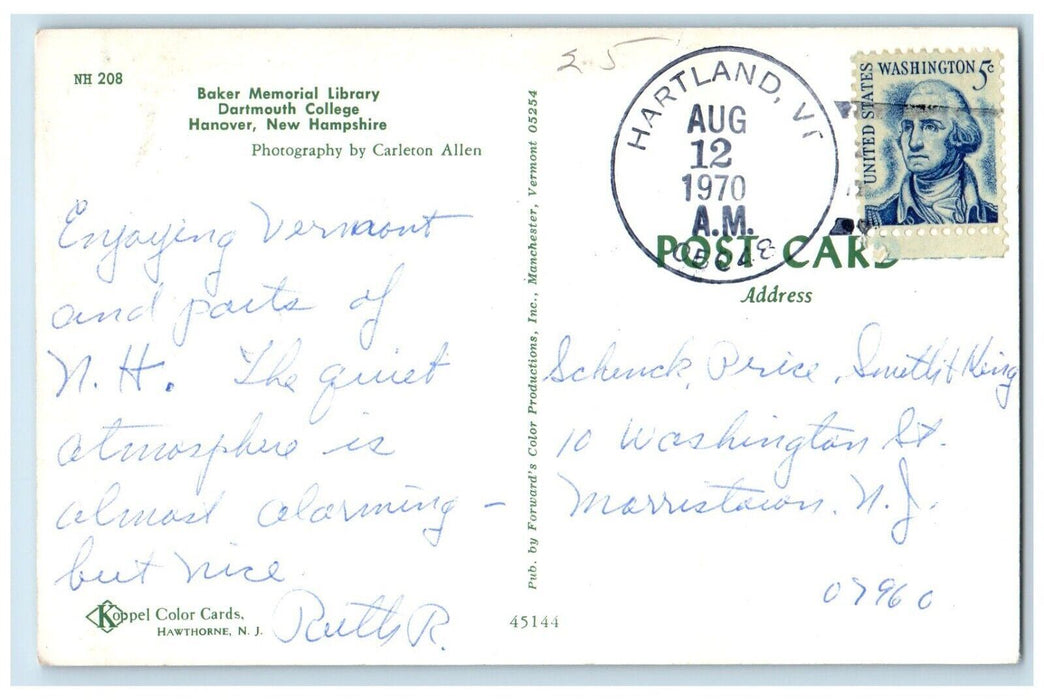 NH 208
Baker Memorial Library
Dartmouth College
Hanover, New Hampshire
Photography by Carleton Allen
Enjoying Vermont
and parts of
N. H. The quiet
atmosphere is
almost alarming –
but nice
Ruth R.
Koppel Color Cards,
HAWTHORNE, N. J.
Pub. by Forward's Color Productions, Inc., Manchester, Vermont 05254
45144
25
HARTLAND, VT
AUG
12
1970
A.M.
05048
UNITED STATES
WASHINGTON 5c
POST CARD
Address
Schenck, Price, Smith & King
10 Washington St.
Morristown, N. J.
07960